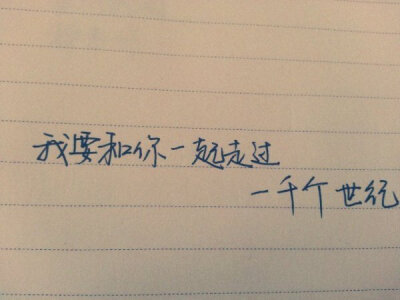 我要和你一起走过
一千个世纪